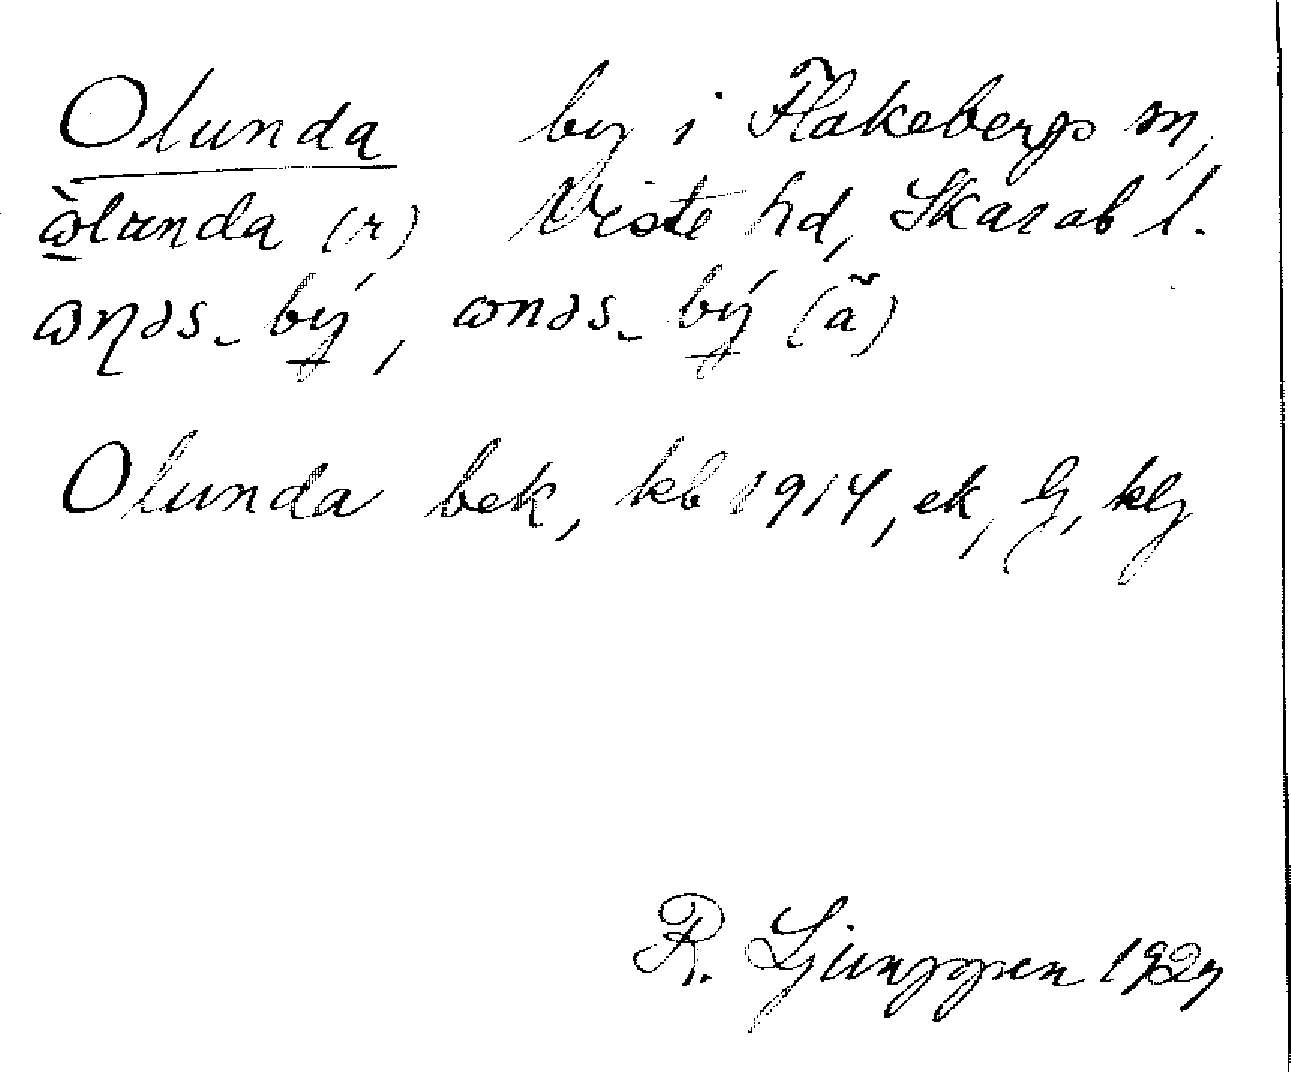 Olunda by i Flakebergs sn,
ὼlunda (r) Viste hd, Skarab l.
ωnəs- bý, ωnəs- bý (ã)
Olunda bek, kb 1914, ek, G, klj
R. Ljunggren 1927